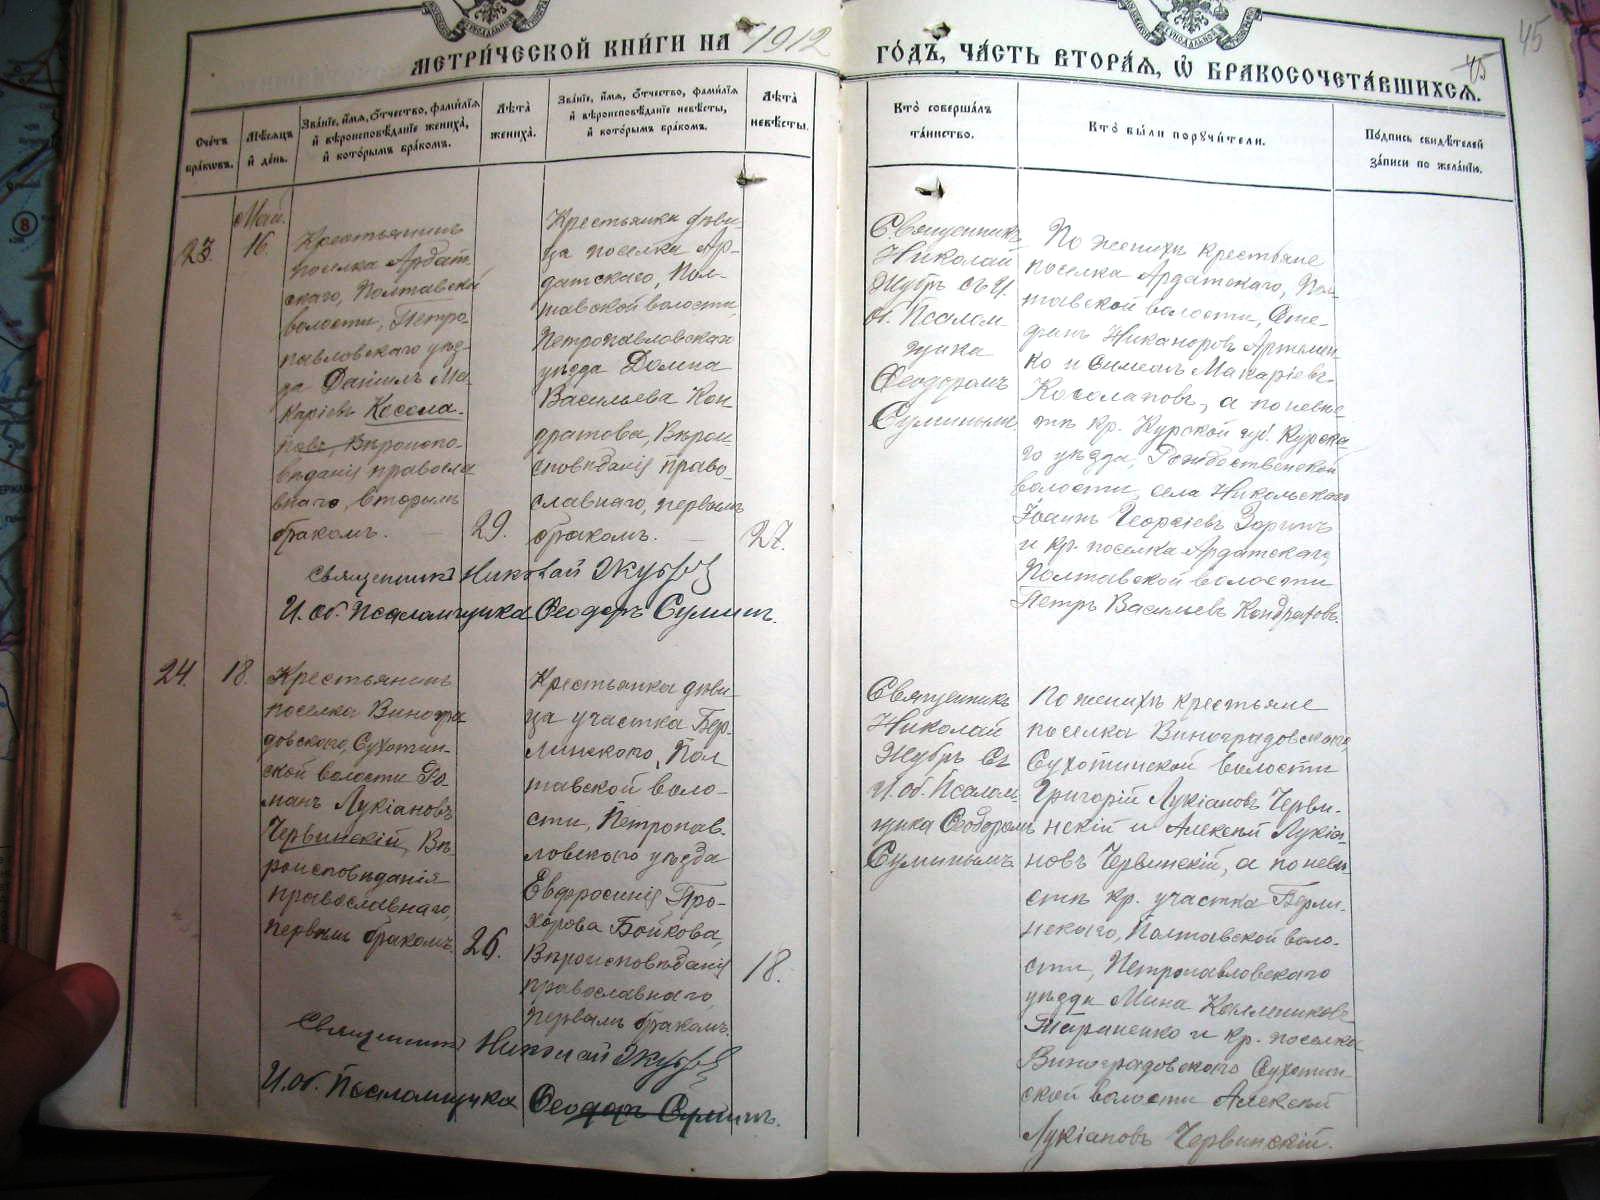 МЕТРИ́ЧЕСКОЙ КНИ́ГИ НА 1912
ГО́ДЪ, ЧА́СТЬ ВТОРА́Я, Ѡ҆ БРАКОСОЧЕТА́ВШИХСЯ.
45
45
Сче́тъ бра́ковъ.
Мѣ́сяцъ и де́нь.
Зва́нїе, и́мя, о́тчество, фами́лїя и вѣроисповѣ́данїе жениха̀, и кото́рымъ бра́комъ.
Лѣта̀ жениха̀.
Зва́нїе, и́мя, о́тчество, фами́лїя и вѣроисповѣ́данїе невѣ́сты, и кото́рымъ бра́комъ.
Лѣта̀ невѣ́сты.
Кто̀ соверша́лъ та́инство.
Кто̀ бы́ли поручи́тели.
По́дпись свидѣ́телей за́писи по жела́нїю.
23.
Май.
16.
Крестьянинъ
поселка Ардат
скаго, Полтавской
волости, Петро-
павловскаго уѣз-
да Даніилъ Ма-
каріевъ Косола-
повъ, Вѣроиспо-
вѣданія правосла
внаго, вторымъ
бракомъ.
29.
Крестьянка дѣви-
ца поселка Ар-
датскаго, Пол-
тавской волости,
Петропавловскаго
уѣзда Домна
Васильева Кон
дратова, Вѣрои
сповѣданія право-
славнаго, первымъ
бракомъ.
27.
Священникъ
Николай
Жубръ съ И.
об. Псалом-
щика
Ѳеодоромъ
Суминымъ
По женихѣ крестьяне
поселка Ардатскаго, Пол-
тавской волости, Сте-
фанъ Никаноровъ Артемен-
ко и Симеонъ Макаріевъ
Косолаповъ, а по невѣ-
стѣ кр. Курской губ. Курска-
го уѣзда, Рождественской
волости, села Никольскаго
Іоаннъ Георгіевъ Зоринъ
и кр. поселка Ардатскаго,
Полтавской волости
Петръ Васильевъ Кондратовъ.
Священникъ Николай Жубръ
И. об. Псаломщика Ѳеодоръ Суминъ.
24.
18.
Крестьянинъ
поселка Виногра
довскаго, Сухотин-
ской волости Ро-
манъ Лукіановъ
Червинскій, Вѣ-
роисповѣданія
православнаго,
первымъ бракомъ.
26.
Крестьянка дѣви-
ца участка Бер-
линскаго, Пол
тавской воло-
сти, Петропав-
ловскаго уѣзда
Евфросинія Про-
хорова Бойкова,
Вѣроисповѣданія
православнаго,
первымъ бракомъ.
18.
Священникъ
Николай
Жубръ съ
И. об. Псалом-
щика Ѳеодоромъ
Суминымъ
По женихѣ крестьяне
поселка Виноградовскаго,
Сухотинской волости
Григорій Лукіановъ Черви-
нскій и Алексѣй Лукіа-
новъ Червинскій, а по невѣ-
стѣ кр. участка Берли-
нскаго, Полтавской воло-
сти, Петропавловскаго
уѣзда Мина
Тараненко и кр. поселка
Виноградовскаго Сухотин-
ской волости Алексѣй
Лукіановъ Червинскій.
Священникъ Николай Жубръ
И. об. Псаломщика Ѳеодоръ Суминъ.